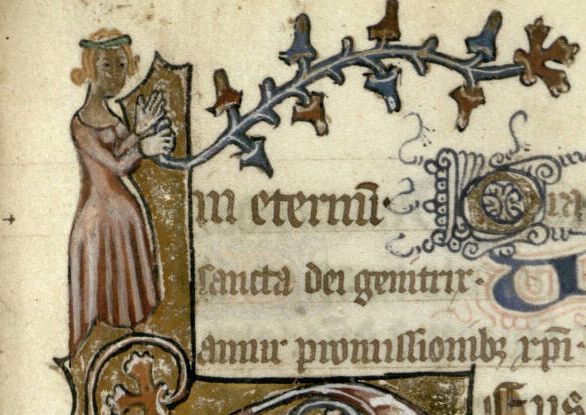 in eternū· O
sancta dei genitrix·
amur promissionibꝫ xp̄i·